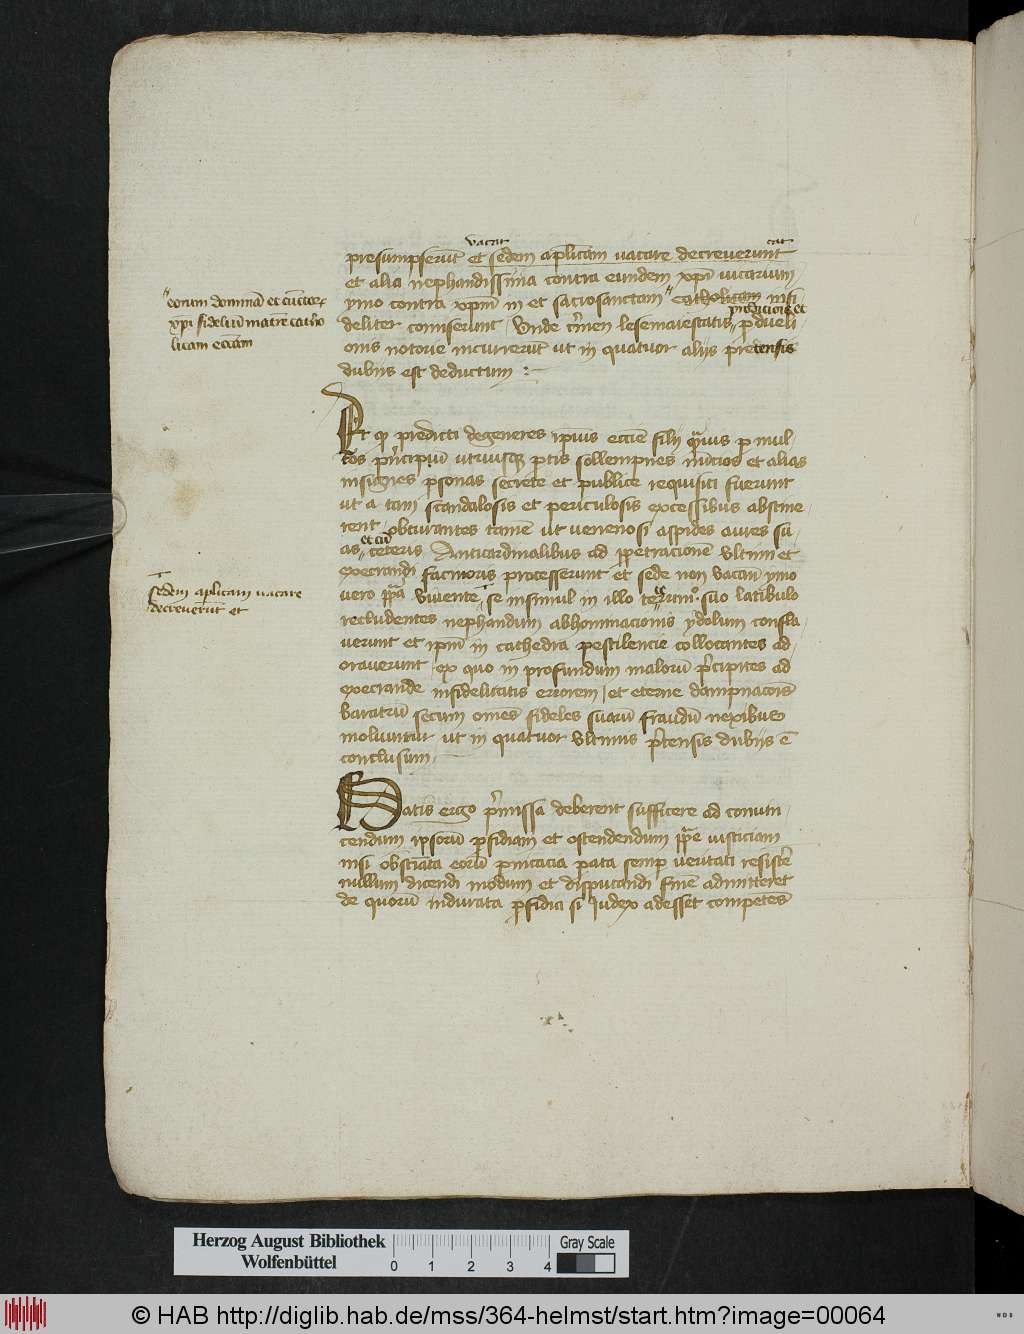 vacat cat
presumpserūt et sedem aplīcam vacare decreverunt
et alia nephandissima contra eundem xp̄i vicarium
ymo contra xp̄m in et sacrosanctam catholicam infi
prodicionis et
deliter comiserunt / Unde crīmen lesemaiestatis pdueli
onis notorie incurrerūt ut in quatuor alijs pretensis
dubijs est deductum
eorum dominā et cunctor
xp̄i fideliū matrē catho
licam eccām
Et qꝫ predicti degeneres ipīus eccīe filij qāuis p mul
tos pncipiū utriusqꝫ ptis sollempnes nūcios et alias
insignes psonas secrete et publice requisiti fuerunt
ut a tam scandalosis et periculosis excessibus abstine
rent / obturantes tamē ut venenosi aspides aures su
et cū
as ceteris Anticardinalibus ad ppetracionē ultimi et
execrandi facinoris processerunt et sede non vacan ymo
vero ppā vivente se insimul in illo suo latibulo
recludentes nephandum abhominacionis ydolum confla
verunt et ipm̄ in cathedra pestilencie collocantes ad
oraverunt / ex quo in profundum malorū pcipites ad
execrande infidelitatis errorem / et eterne dampnacōis
baratrū secum omēs fideles suarū fraudū nexibus
moliuntur ut in quatuor ultimis ptensis dubijs ē
conclusum
sedem aplīcam vacare
decreverūt et
Satis ergo pmissa deberent sufficere ad convin
cendum ipsorū pfidiam et ostendendum ppē iusticiam
nisi obstinata eorū ptinacia pata semp veritati resistē
nullum dicendi modum et disputandi finē admitteret
de quorū indurata pfidia si Judex adesset competēs
Herzog August Bibliothek
Wolfenbüttel
0 1 2 3 4
Gray Scale
© HAB http://diglib.hab.de/mss/364-helmst/start.htm?image=00064